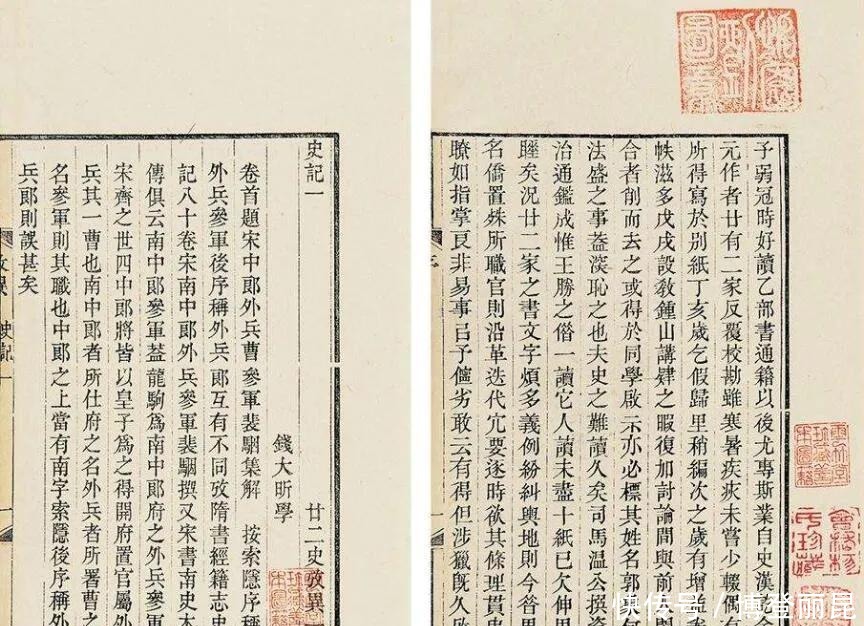 予弱冠時好讀乙部書通籍以後尤專斯業自史漢訖金
元作者廿有二家反覆校勘雖寒暑疾疢未嘗少輟偶有
所得寫於別紙丁亥歲乞假歸里稍編次之歲有增益卷
帙滋多戊戌設敎鍾山講肄之暇復加討論間與前
合者削而去之或得於同學啟示亦必標其姓名郭
法盛之事葢深恥之也夫史之難讀久矣司馬温公撰資
治通鑑成惟王勝之借一讀它人讀未盡十紙已欠伸思
睡矣況廿二家之書文字煩多義例紛糾輿地則今昔
名僑置殊所職官則沿革迭代冗要逐時欲其條理貫
瞭如指掌良非易事㠯予儜劣敢云有得但涉獵旣久
史記一 廿二史攷異一
錢大昕學
卷首題宋中郞外兵曹參軍裴駰集解 按索隱序稱
外兵參軍後序稱外兵郞互有不同攷隋書經籍志史
記八十卷宋南中郞外兵參軍裴駰撰又宋書南史
傳俱云南中郞參軍葢龍駒爲南中郞府之外兵參軍
宋齊之世四中郞將皆以皇子爲之得開府置官屬外
兵其一曹也南中郞者所仕府之名外兵者所署曹之
名參軍則其職也中郞之上當有南字索隱後序稱外
兵郞則誤甚矣
史記一
快传号/博登丽昆